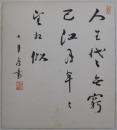 人生代々無窮
已江月年々
望相似